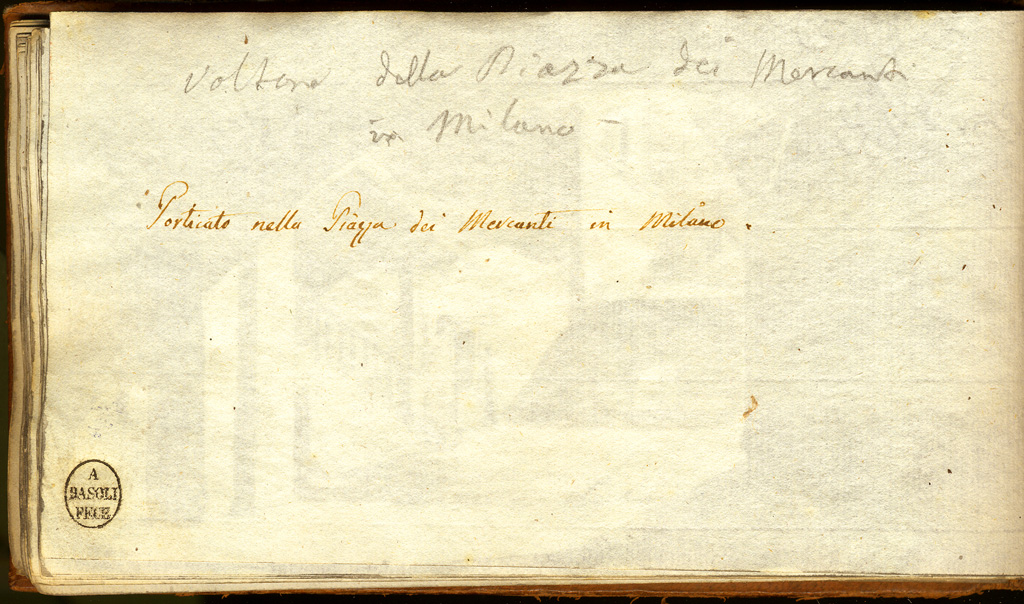 Voltone della Piazza dei Mercanti
in Milano -
Porticato nella Piazza dei Mercanti in Milano .
A
BASOLI
FECE